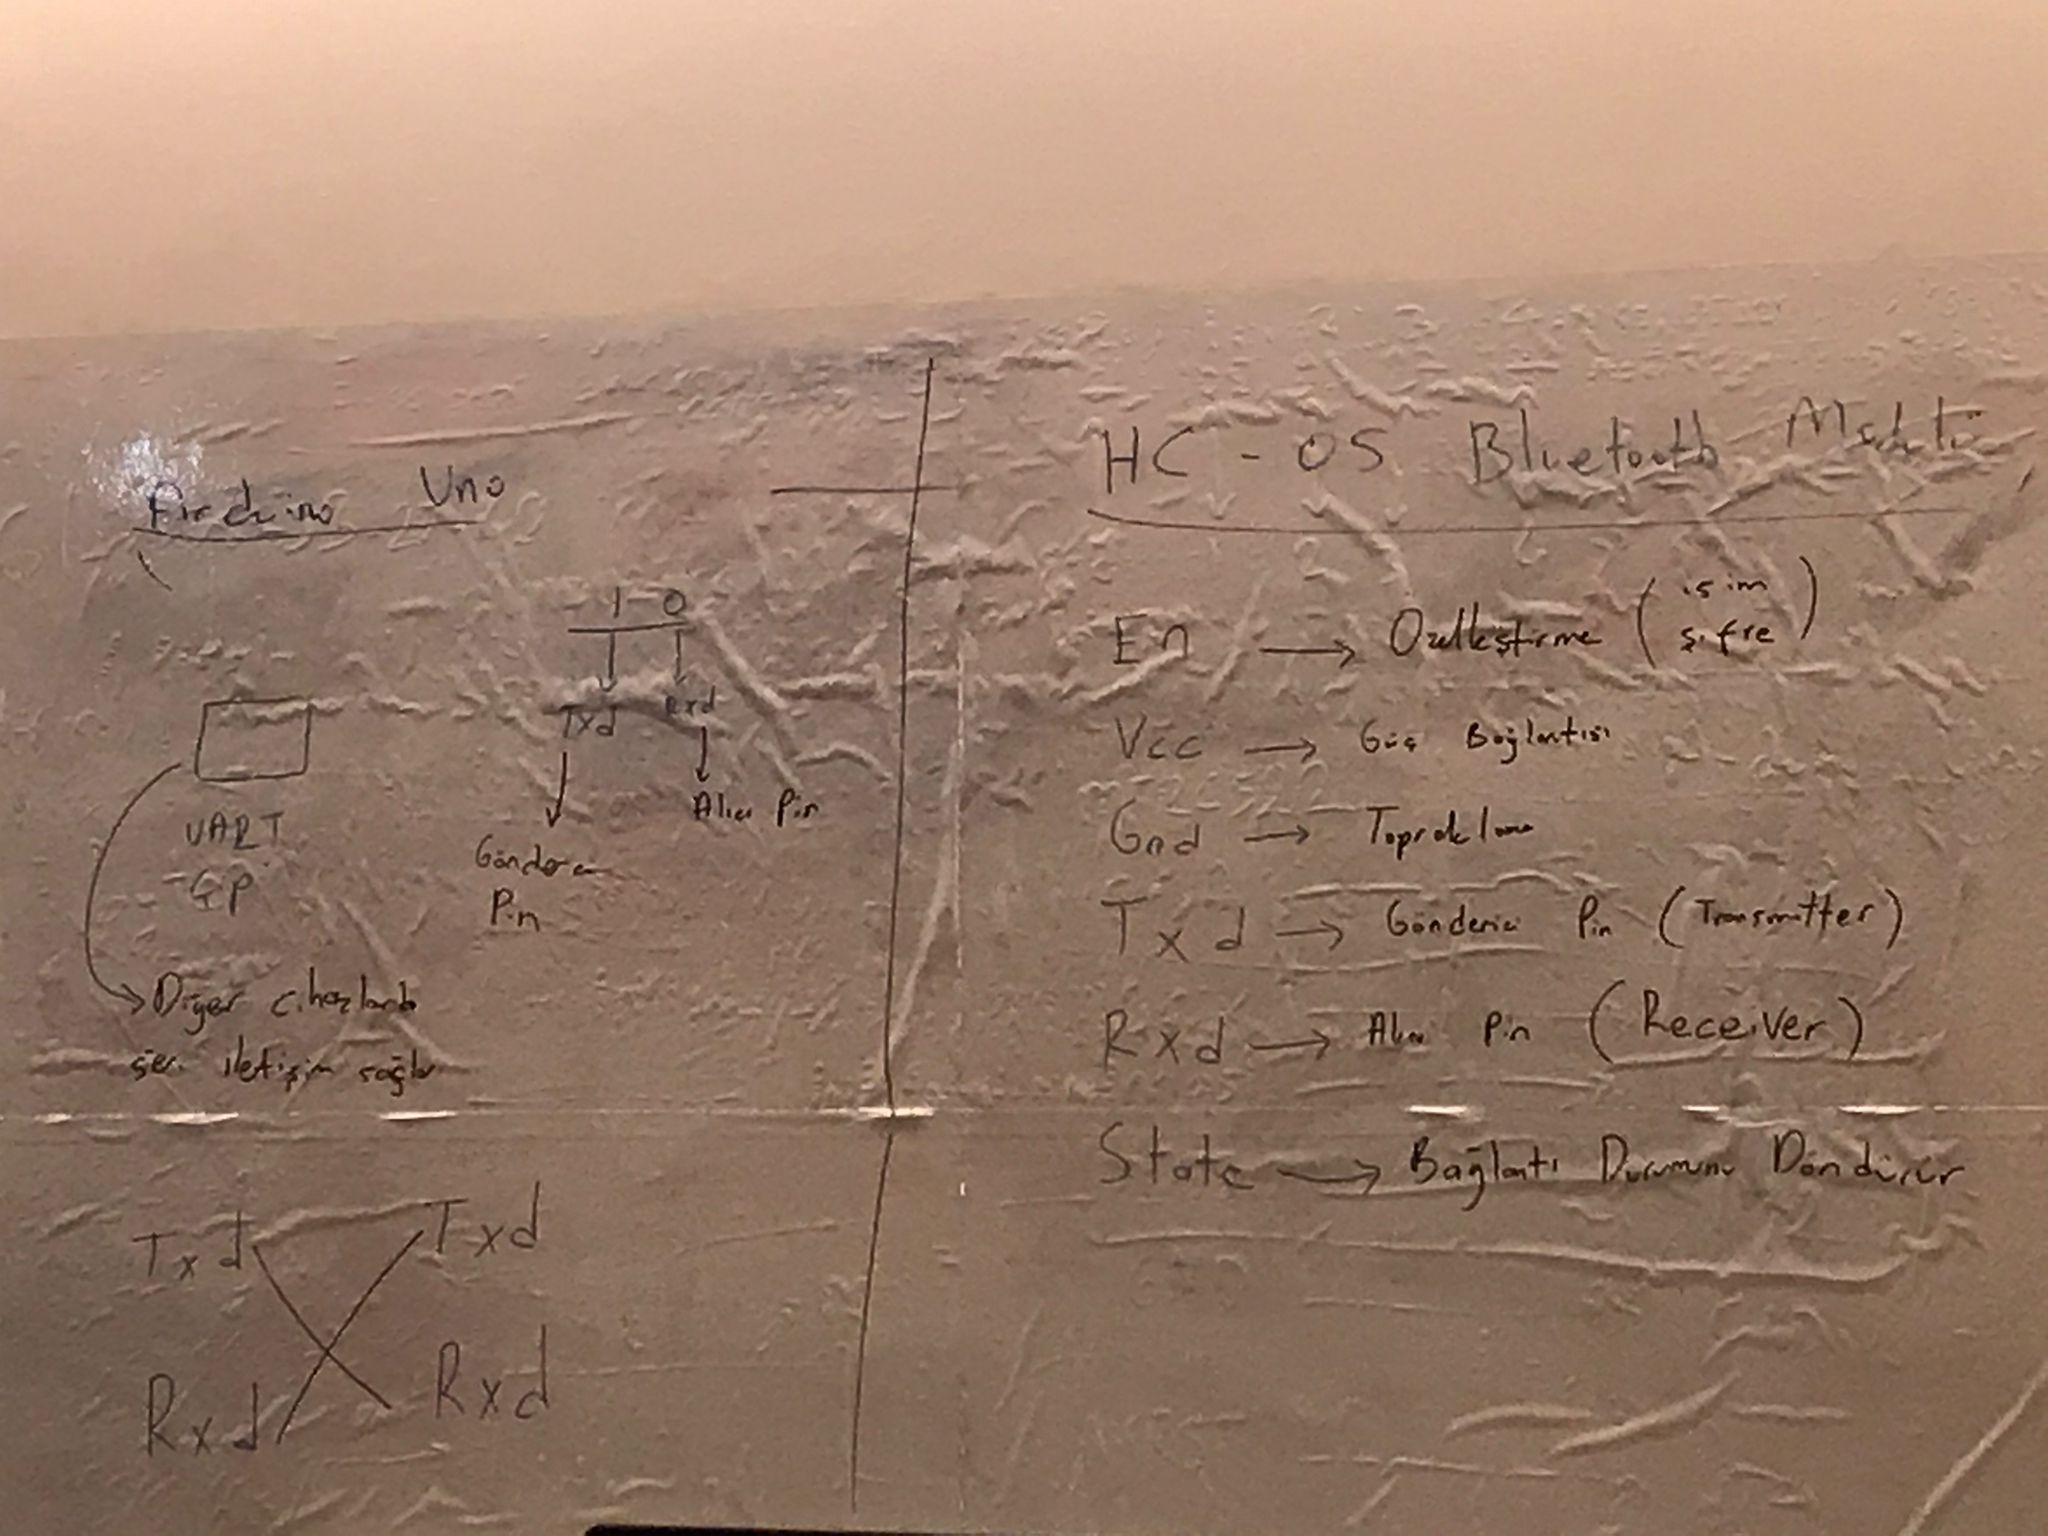 Arduino Uno
1 0
Txd Rxd
Alıcı Pin
Gönderici
Pin
UART
GP
Diğer cihazlarla
seri iletişim sağlar
Txd Txd
Rxd Rxd
HC-05 Bluetooth Modülü
En → Özelleştirme (isim
şifre)
Vcc → Güç Bağlantısı
Gnd → Topraklama
Txd → Gönderici Pin (Transmitter)
Rxd → Alıcı Pin (Receiver)
State → Bağlantı Durumunu Döndürür